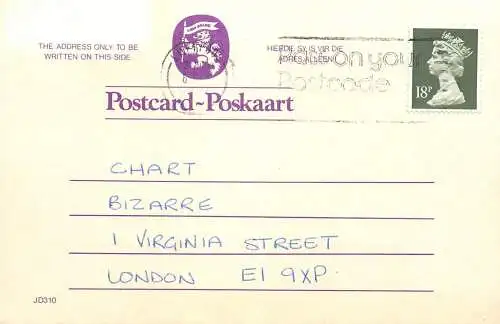 THE ADDRESS ONLY TO BE
WRITTEN ON THIS SIDE
HIERDIE SY IS VIR DIE
ADRES ALLEEN
on your
Postcode
18P
Postcard~Poskaart
CHART
BIZARRE
1 VIRGINIA STREET
LONDON E1 9XP.
JD310